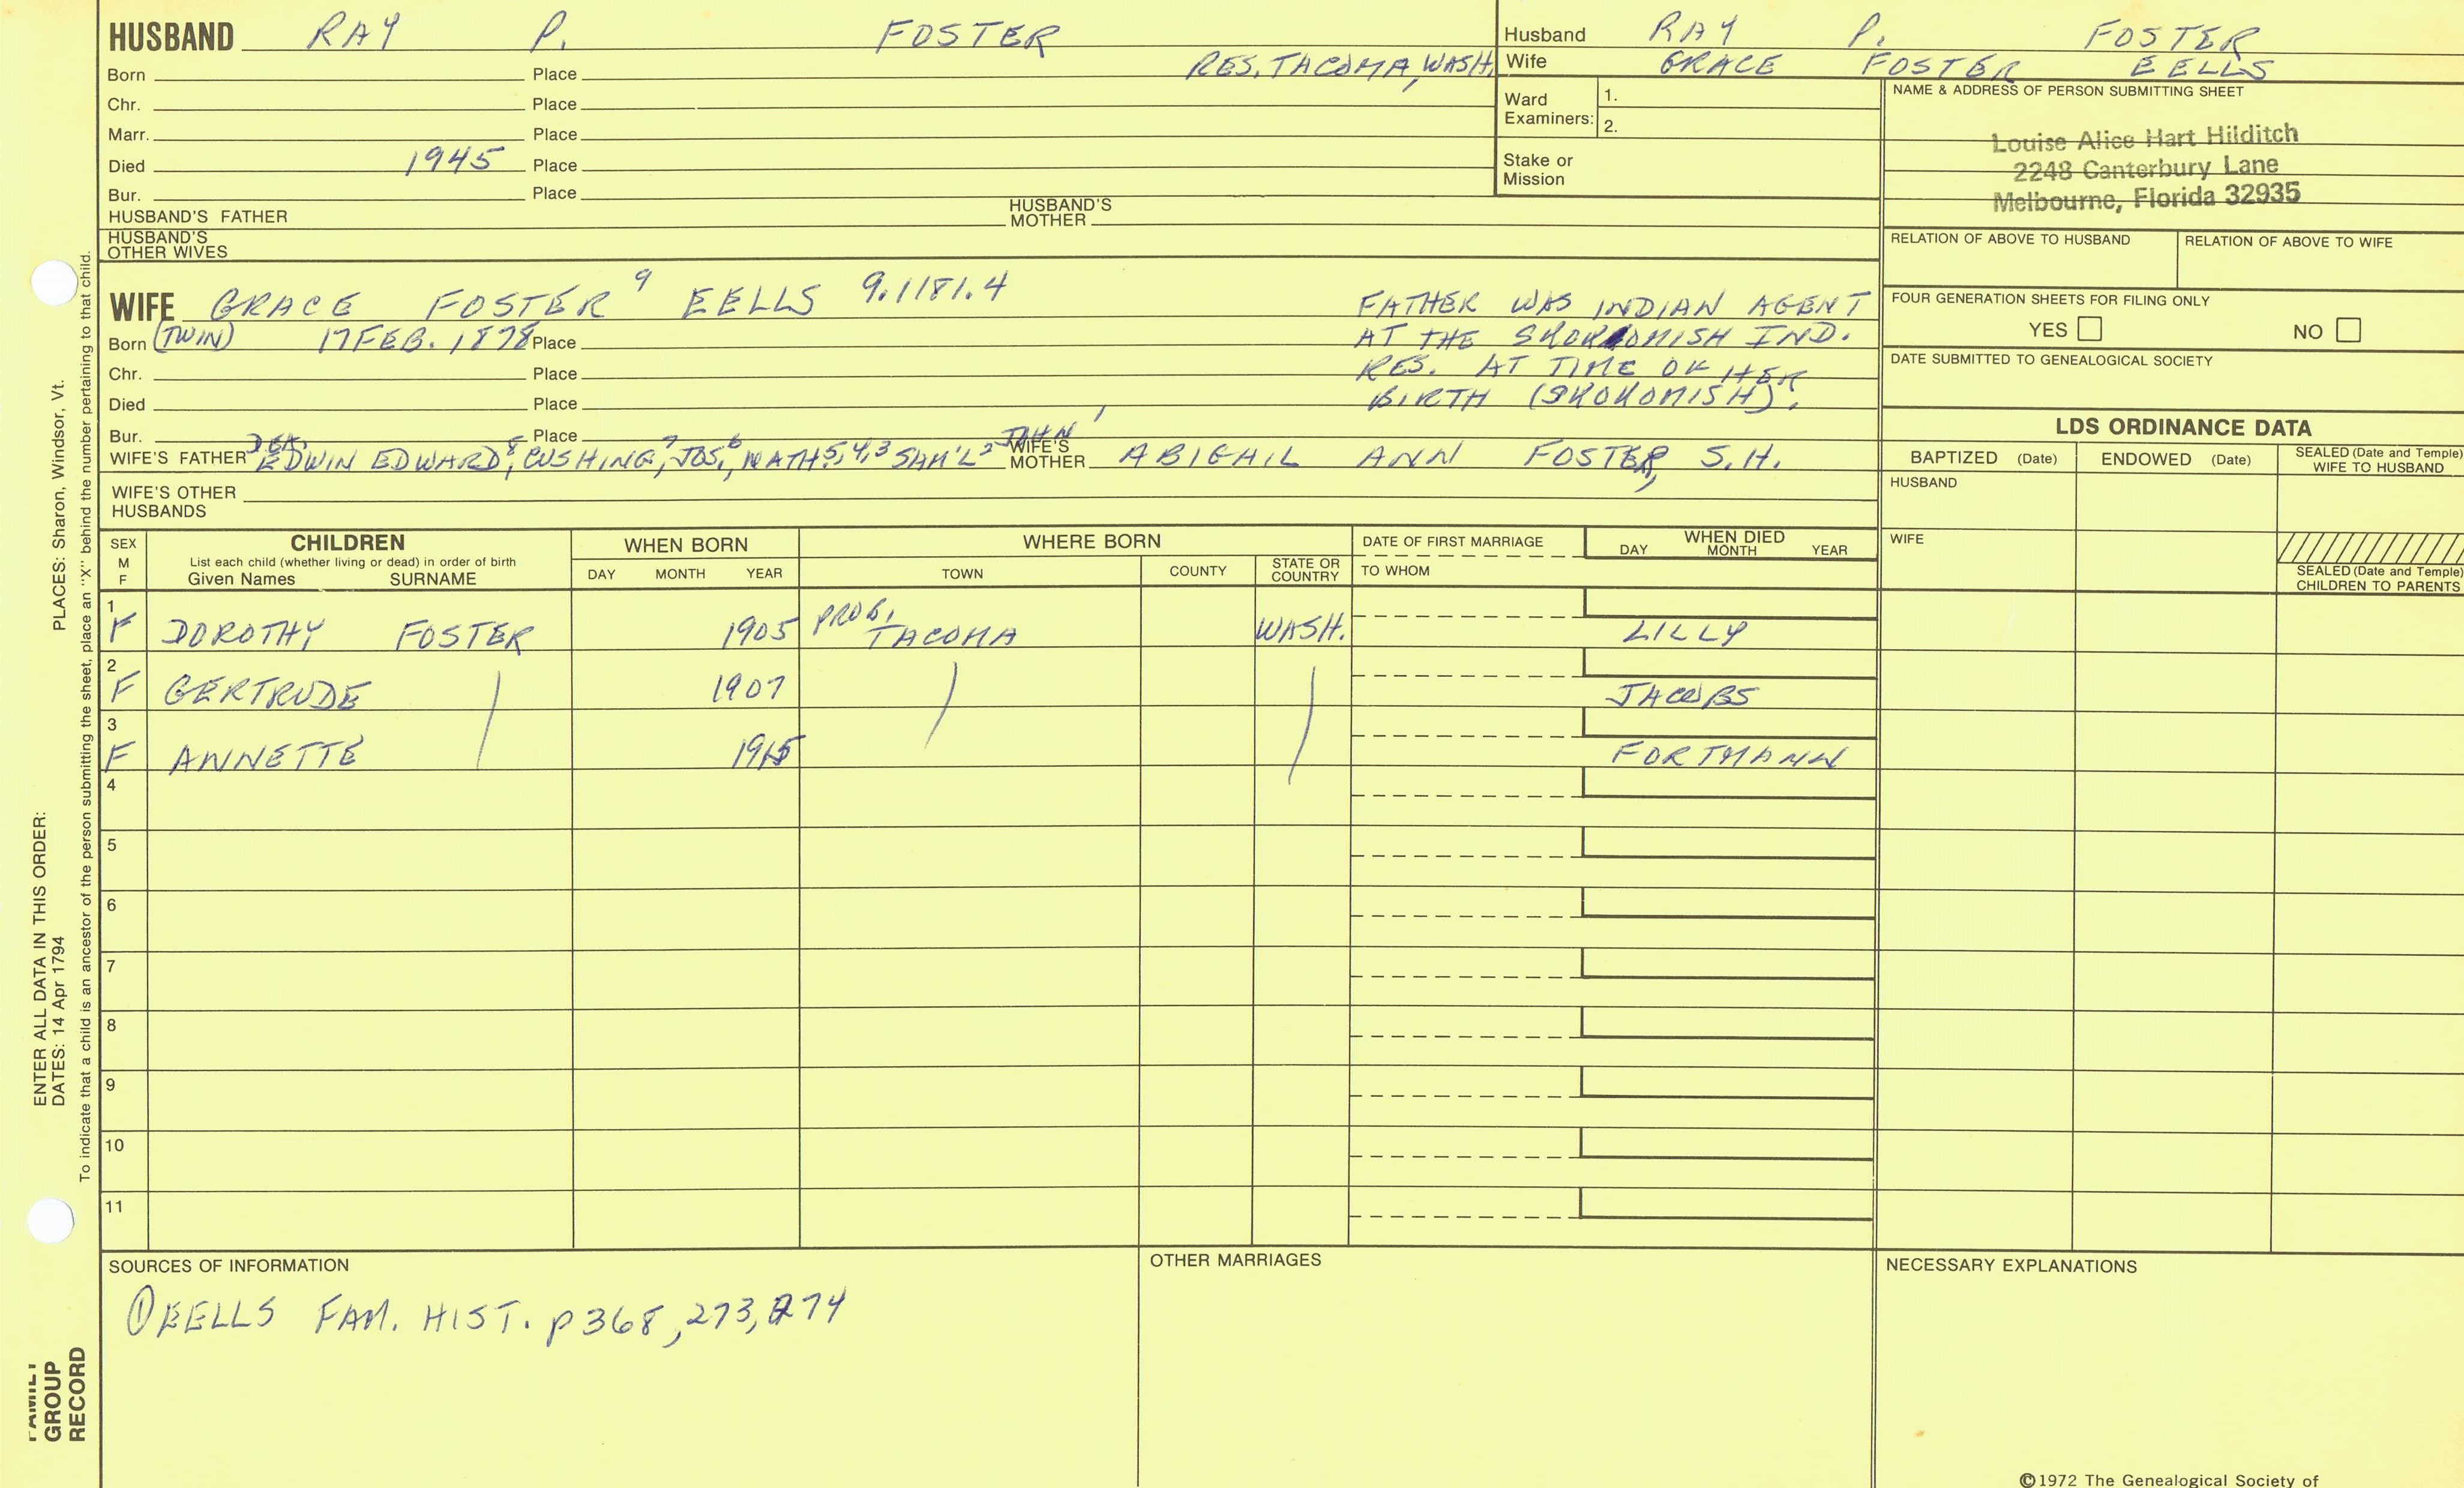 HUSBAND RAY P. FOSTER
RES. TACOMA, WASH.
Born Place
Chr. Place
Marr. Place
Died 1945 Place
Bur. Place
HUSBAND'S FATHER HUSBAND'S MOTHER
HUSBAND'S OTHER WIVES
Husband RAY P. FOSTER
Wife GRACE FOSTER EELLS
Ward Examiners: 1.
2.
Stake or Mission
NAME & ADDRESS OF PERSON SUBMITTING SHEET
Louise Alice Hart Hilditch
2248 Canterbury Lane
Melbourne, Florida 32935
RELATION OF ABOVE TO HUSBAND RELATION OF ABOVE TO WIFE
FOUR GENERATION SHEETS FOR FILING ONLY
YES NO
DATE SUBMITTED TO GENEALOGICAL SOCIETY
WIFE GRACE FOSTER 9 EELLS 9.1181.4
Born (TWIN) 17 FEB. 1878 Place
Chr. Place
Died Place
Bur. Place
FATHER WAS INDIAN AGENT
AT THE SKOKOMISH IND.
RES. AT TIME OF HER
BIRTH (SKOKOMISH).
WIFE'S FATHER EDWIN EDWARD 8, CUSHING, 7 JOS, 6 NATH 5, 4, 3 SAM'L 2 JOHN 1 WIFE'S MOTHER ABIGAIL ANN FOSTER, S.H.
WIFE'S OTHER HUSBANDS
LDS ORDINANCE DATA
BAPTIZED (Date) ENDOWED (Date) SEALED (Date and Temple) WIFE TO HUSBAND
HUSBAND
WIFE
SEALED (Date and Temple) CHILDREN TO PARENTS
SEX M F
CHILDREN
List each child (whether living or dead) in order of birth
Given Names SURNAME
WHEN BORN
DAY MONTH YEAR
WHERE BORN
TOWN COUNTY STATE OR COUNTRY
DATE OF FIRST MARRIAGE
TO WHOM
WHEN DIED
DAY MONTH YEAR
1 F DOROTHY FOSTER 1905 PROB. TACOMA WASH. LILLY
2 F GERTRUDE 1907 JACOBS
3 F ANNETTE 1915 FORTMANN
4
5
6
7
8
9
10
11
SOURCES OF INFORMATION
① EELLS FAM. HIST. p 368, 273, 274
OTHER MARRIAGES
NECESSARY EXPLANATIONS
©1972 The Genealogical Society of
ENTER ALL DATA IN THIS ORDER:
DATES: 14 Apr 1794 PLACES: Sharon, Windsor, Vt.
To indicate that a child is an ancestor of the person submitting the sheet, place an "X" behind the number pertaining to that child.
FAMILY
GROUP
RECORD